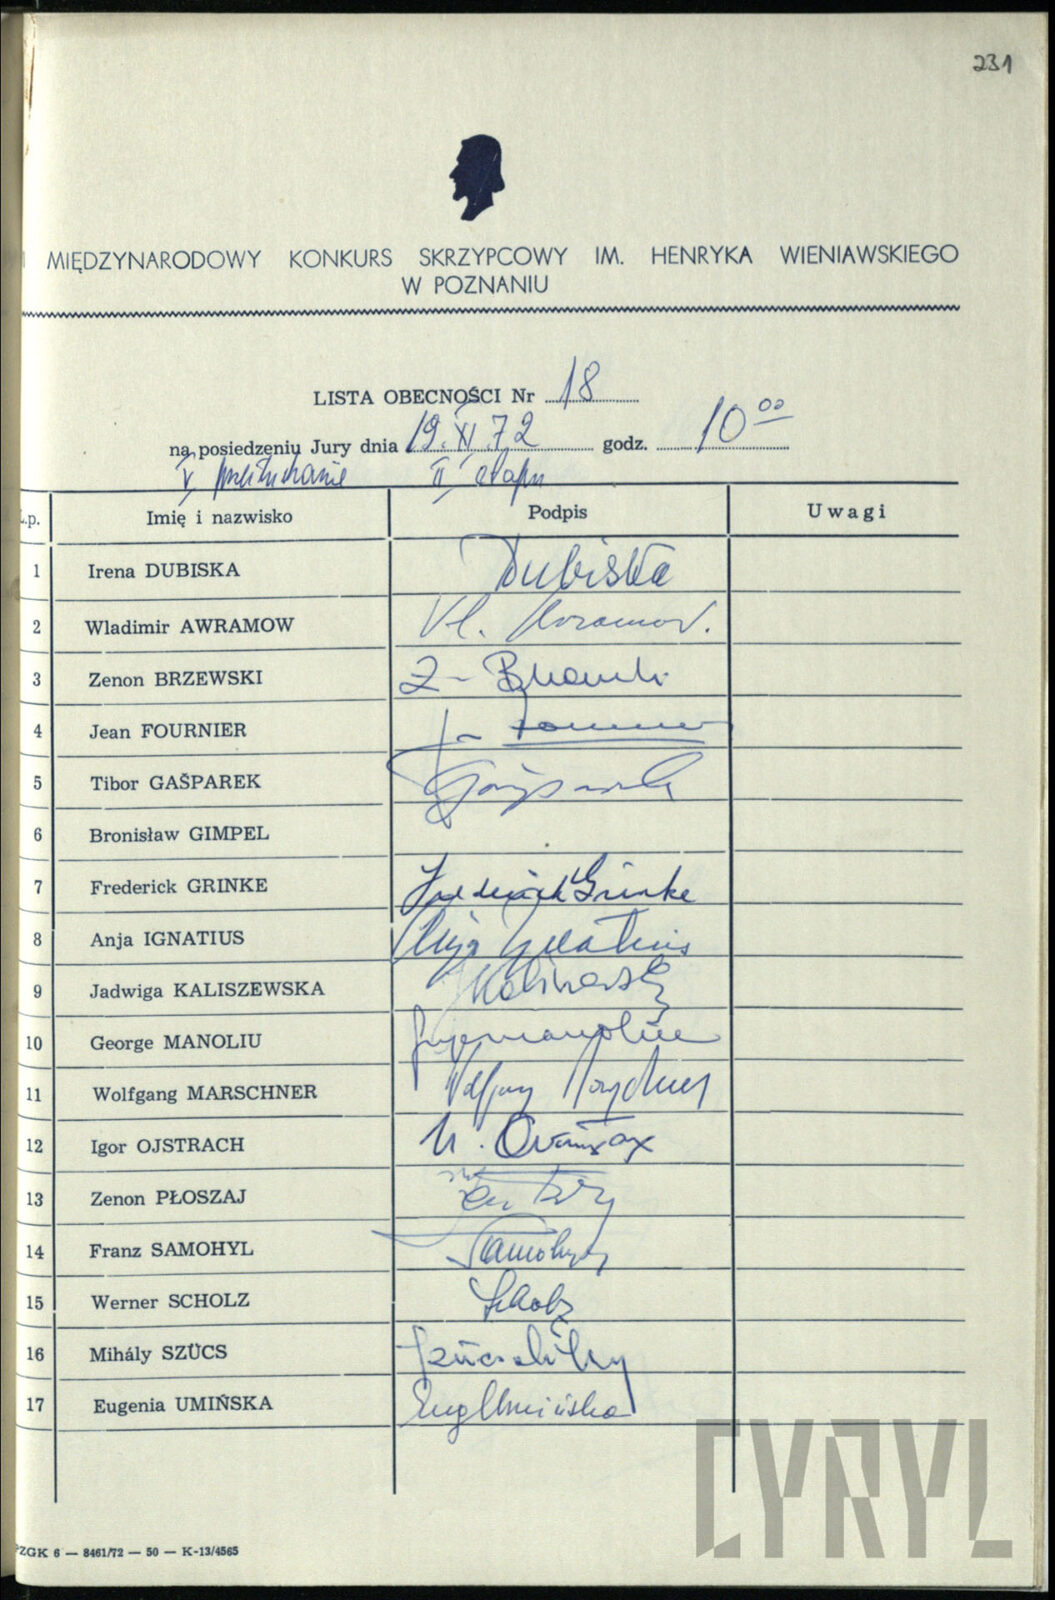 231
MIĘDZYNARODOWY KONKURS SKRZYPCOWY IM. HENRYKA WIENIAWSKIEGO
W POZNANIU
LISTA OBECNOŚCI Nr 18
na posiedzeniu Jury dnia 19.XI.72 godz. 10⁰⁰
V. przesłuchanie II etapu
L.p. Imię i nazwisko Podpis Uwagi
1 Irena DUBISKA Dubiska
2 Wladimir AWRAMOW Vl. Avramov.
3 Zenon BRZEWSKI Z-
4 Jean FOURNIER
5 Tibor GAŠPAREK Gašparek
6 Bronisław GIMPEL
7 Frederick GRINKE Frederick Grinke
8 Anja IGNATIUS Anja Ignatius
9 Jadwiga KALISZEWSKA
10 George MANOLIU
11 Wolfgang MARSCHNER Wolfgang Marschner
12 Igor OJSTRACH И. Ойстрах
13 Zenon PŁOSZAJ
14 Franz SAMOHYL Samohyl
15 Werner SCHOLZ Scholz
16 Mihály SZÜCS Szücs Mihály
17 Eugenia UMIŃSKA Eug Umińska
PZGK 6 — 8461/72 — 50 — K-13/4565
CYRYL